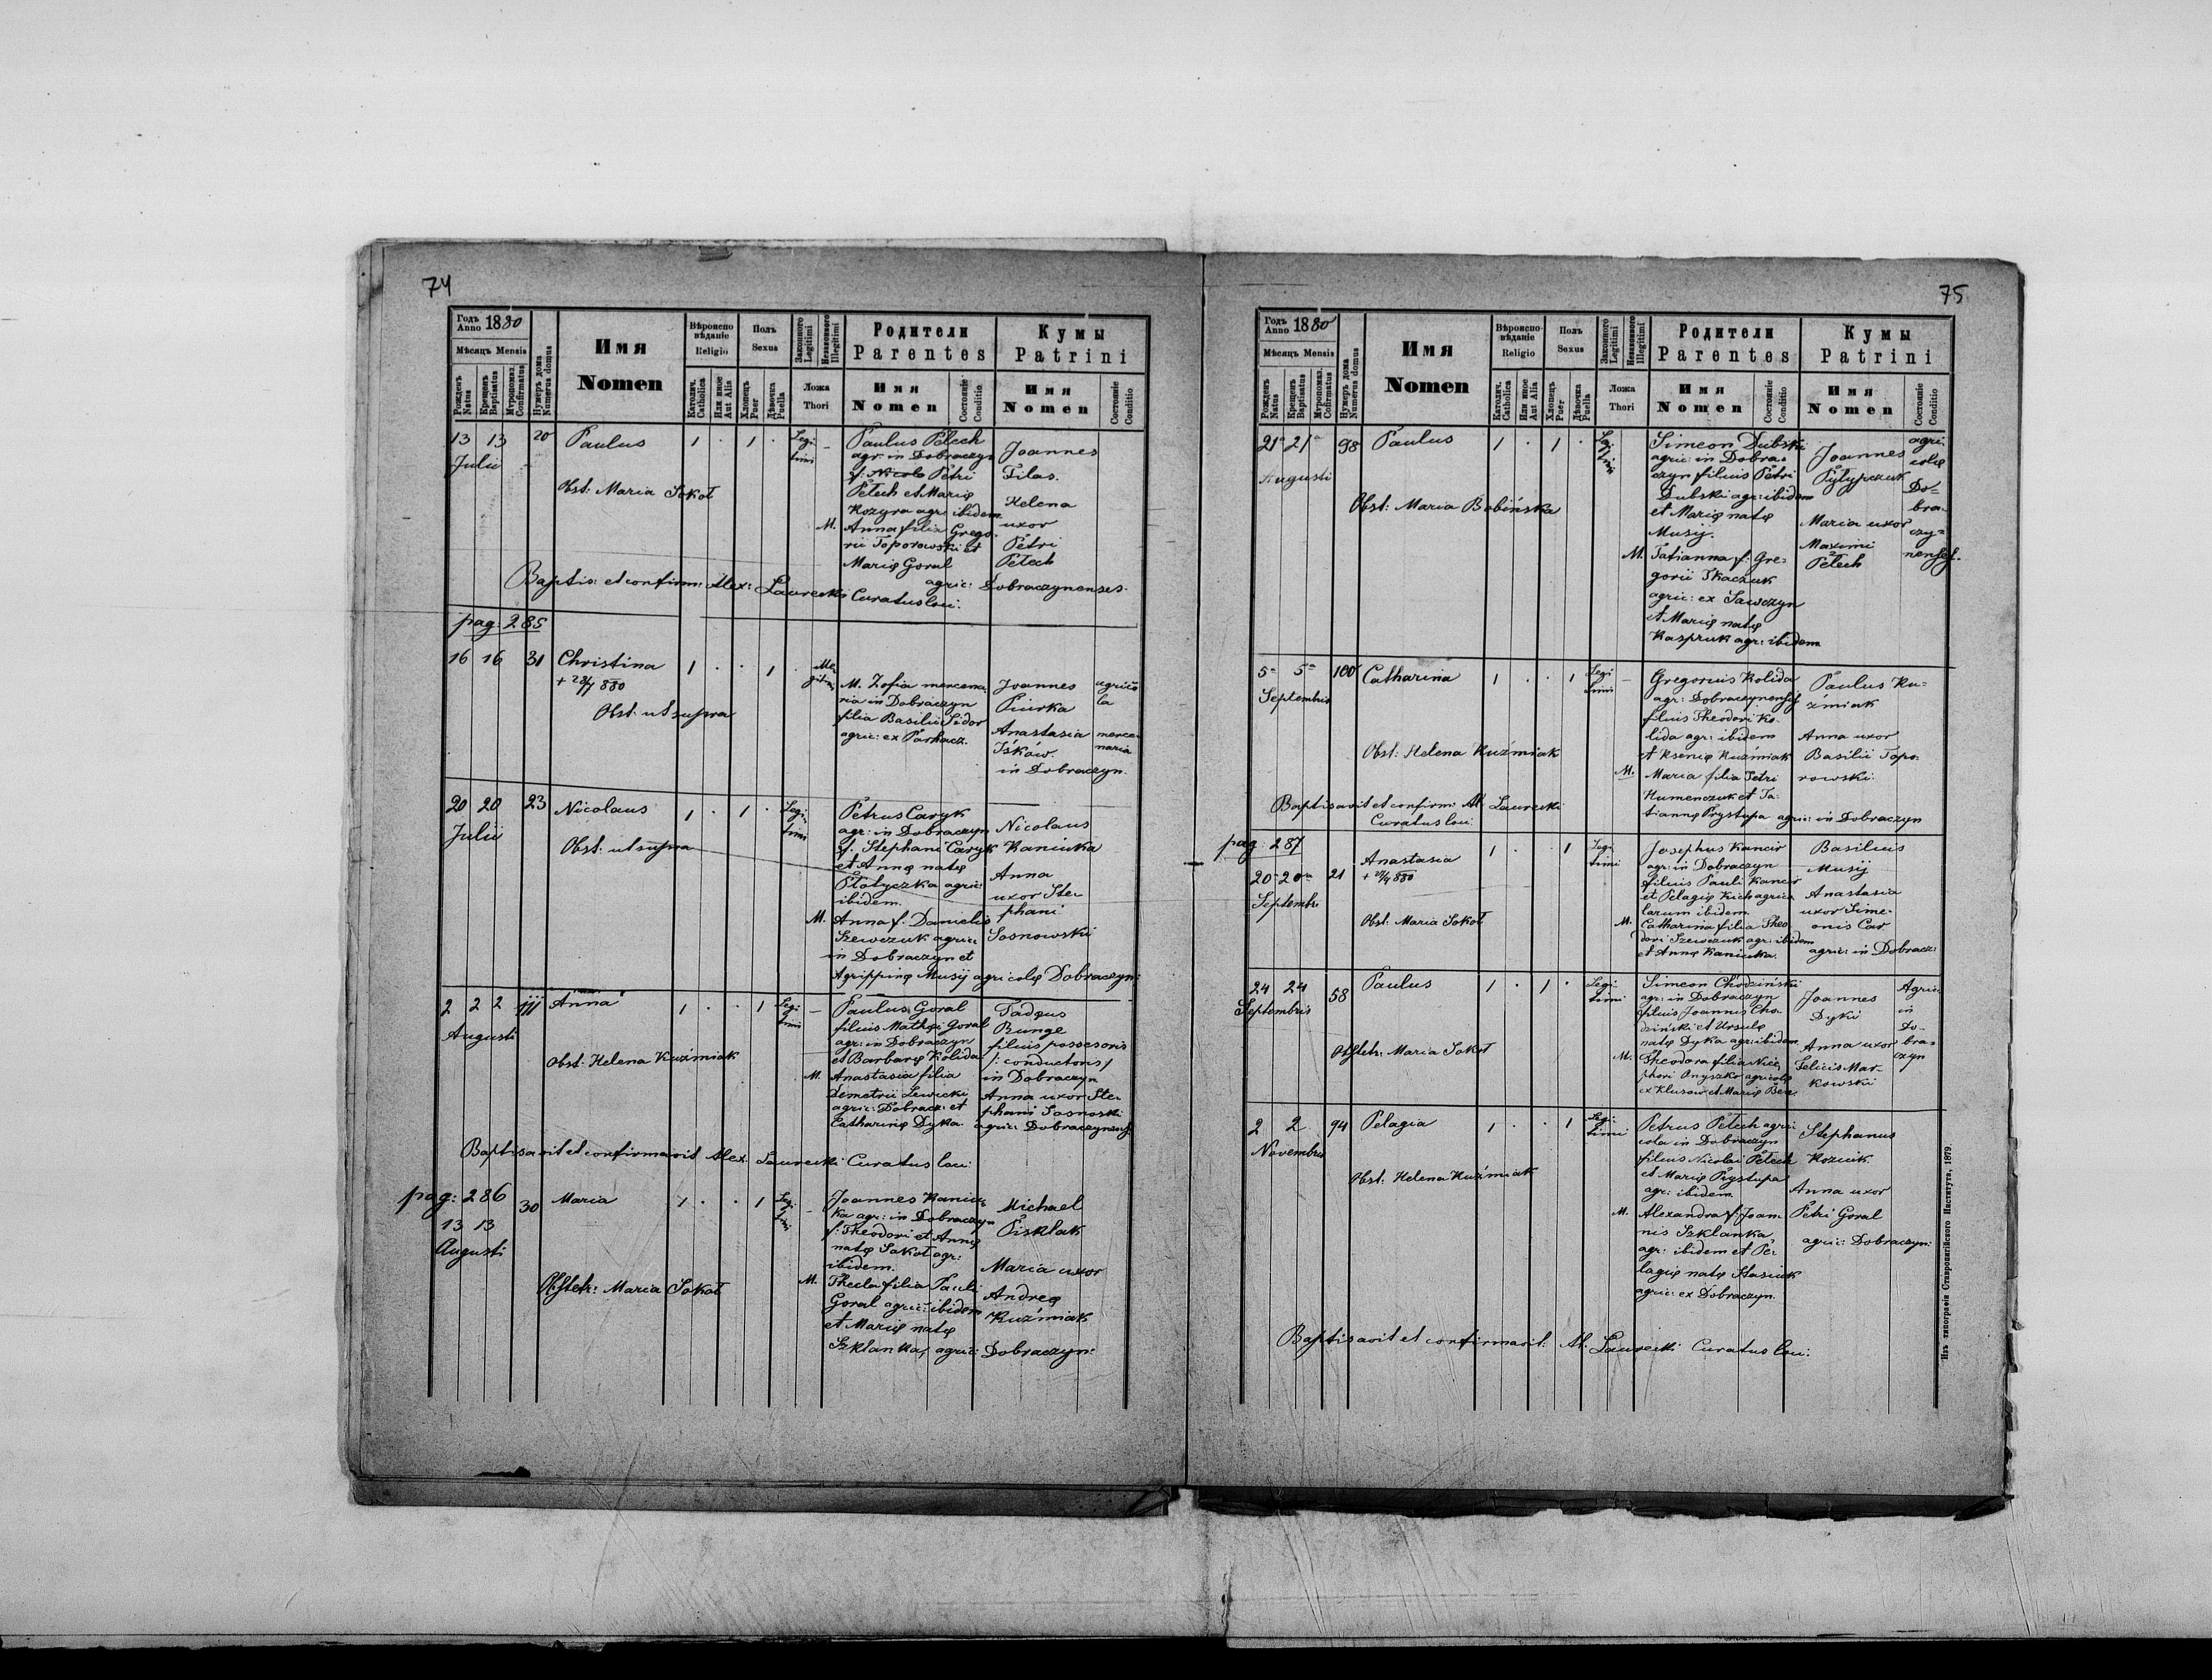 74
Годъ Anno 1880
Мѣсяцъ Mensis
Рожденъ Natus
Крещенъ Baptisatus
Мѵропомаз. Confirmatus
Нумеръ дома Numerus domus
Имя Nomen
Вѣроиспо-вѣданіе Religio
Католич. Catholica
Или иное Aut Alia
Полъ Sexus
Хлопецъ Puer
Дѣвочка Puella
Законного Legitimi
Незаконного Illegitimi
Ложа Thori
Родители Parentes
Имя Nomen
Состояніе Conditio
Кумы Patrini
Имя Nomen
Состояніе Conditio
13 13 Julii 20 Paulus 1 . 1 . Legi-timi –
Obst: Maria Sokoł
Paulus Pełech
agr: in Dobraczyn
f: Petri
Pełech et Marię
Kozyra agr: ibidem
M. Anna filia Grego-
rii Toporowski et
Marię Goral
Joannes
Filas.
Helena
uxor
Petri
Pełech
agric: Dobraczynenses.
Baptis: et confirm: Alex: Laurecki Curatus loci.
pag: 285
16 16 31 Christina 1 . . 1 . Ille-gitimi
+ 28/7 880
Obst: ut supra
M. Zofia mercena-
ria in Dobraczyn
filia Basilii Sidor
agric: ex Parhacz.
Joannes agrico-
Piurka la
Anastasia merce-
Iśków. naria
in Dobraczyn.
20 20 Julii 23 Nicolaus 1 . 1 . Legi-timi
Obst: ut supra
Petrus Caryk
agr: in Dobraczyn
f. Stephani Caryk
et Annę natę
Płotyczka agric:
ibidem.
M. Anna f. Danielis
Szewczuk agric:
in Dobraczyn et
Agrippinę Musij agricolę Dobraczyn:
Nicolaus
Kaniuka
Anna
uxor Ste-
phani
Sosnowski
2 2 2 Augusti 111 Anna 1 . . 1 Legi-timi –
Obst: Helena Kuźmiak
Paulus Goral
filius Mathęi Goral
agr: in Dobraczyn
et Barbarę Kolida
M. Anastasia filia
Demetrii Lewicki
agric: Dobracz: et
Catharinę Dyka.
Tadęus
Runge
filius possessoris
/: conductoris/
in Dobraczyn
Anna uxor Ste-
phani Sosnoski
agric: Dobraczynens.
Baptisavit et confirmavit Alex. Laurecki Curatus loci
pag: 286
13 13 Augusti 30 Maria 1 . . 1 Legi-timi –
Obstetr: Maria Sokoł
Joannes Kaniu-
ka agr: in Dobraczyn
f. Theodori et Annę
natę Sokoł agr:
ibidem.
M. Thecla filia Pauli
Goral agric: ibidem
et Marię natę
Szklanka, agric: Dobraczyn:
Michael
Pisklak
Maria uxor
Andreę
Kuźmiak
75
Годъ Anno 1880
Мѣсяцъ Mensis
Рожденъ Natus
Крещенъ Baptisatus
Мѵропомаз. Cofirmatus
Нумеръ дома Numerus domus
Имя Nomen
Вѣроиспо-вѣданіе Religio
Католич. Catholica
Или иное Aut Alia
Полъ Sexus
Хлопецъ Puer
Дѣвочка Puella
Законного Legitimi
Незаконного Illegitimi
Ложа Thori
Родители Parentes
Имя Nomen
Состояніе Conditio
Кумы Patrini
Имя Nomen
Состояніе Conditio
21a 21a Augusti 98 Paulus 1 . 1 . Legitimi
Obst: Maria Bobińska
Simeon Dubski
agric: in Dobra-
czyn filius Petri
Dubski agr: ibidem
et Marię natę
Musij.
M. Tatianna f. Gre-
gorii Tkaczuk
agric: ex Sawczyn
et Marię natę
Kaspruk agr: ibidem
Joannes
Pyłypczuk
Maria uxor
Maximi
Pełech
agri-
colę
Do-
bra-
czy-
nenses.
5a 5a Septembris 100 Catharina 1 . . 1 Legi-timi –
Obst: Helena Kuźmiak
Gregorius Kolida
agr: Dobraczynensis
filius Theodori Ko-
lida agr: ibidem
et Ksenię Kuźmiak
M. Maria filia Petri
Humenczuk et Ta-
tiannę Prystupa agric: in Dobraczyn
Paulus Ku-
źmiak
Anna uxor
Basilii Topo-
rowski.
Baptisavit et confirm: Al: Laurecki
Curatus loci
pag: 287
20 20 Septembr 21 Anastasia 1 . . 1 Legi-timi
Obst: Maria Sokoł
Josephus Kancir
agr: in Dobraczyn
filius Pauli Kancir
et Pelagię Kich agrico-
larum ibidem.
M. Catharina filia Theo-
dori Szewczuk agr: ibidem
et Annę Kaniuka.
Basilius
Musij
Anastasia
uxor Sime-
onis Car
agric: in Dobracz:
24 24 Septembris 58 Paulus 1 . 1 . Legi-timi
Obstetr: Maria Sokoł
Simeon Chodziński
agr: in Dobraczyn
filius Joannis Cho-
dziński et Ursulę
natę Dyka agr: ibidem
M. Theodora filia Nice-
phori Onyszko agricolę
ex Klusow et Marię
Joannes
Dyku
Anna uxor
Felicis Mar-
kowski
Agric:
in
Do-
bra-
czyn
2 2 Novembris 94 Pelagia 1 . . 1 Legi-timi
Obst: Helena Kuźmiak
Petrus Pełech agri-
cola in Dobraczyn
filius Nicolai Pełech
et Marię Prystupa
agr: ibidem.
M. Alexandra f. Joan-
nis Szklanka
agr: ibidem et Pe-
lagię natę Stasiuk
agric: ex Dobraczyn.
Stephanus
Koziuk.
Anna uxor
Petri Goral
agric: Dobraczyn:
Baptisavit et confirmavit: Al: Laurecki Curatus loci.
Изъ типографіи Ставропигійского Института, 1879